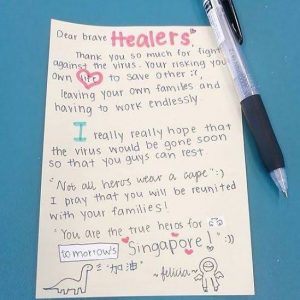 Dear brave Healers,
Thank you so much for fight
against the virus. Your risking you
own life to save other :',
leaving your own familes and
having to work endlessly.
I really really hope that
the virus would be gone soon
so that you guys can rest
"Not all heros wear a cape" :)
I pray that you will be reunited
with your families!
"You are the true heros for
tomorrows Singapore!" :))
加油
~felicia~